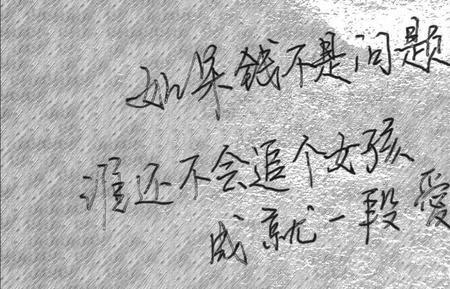 如果钱不是问题
谁还不会追个女孩
成就一段愛